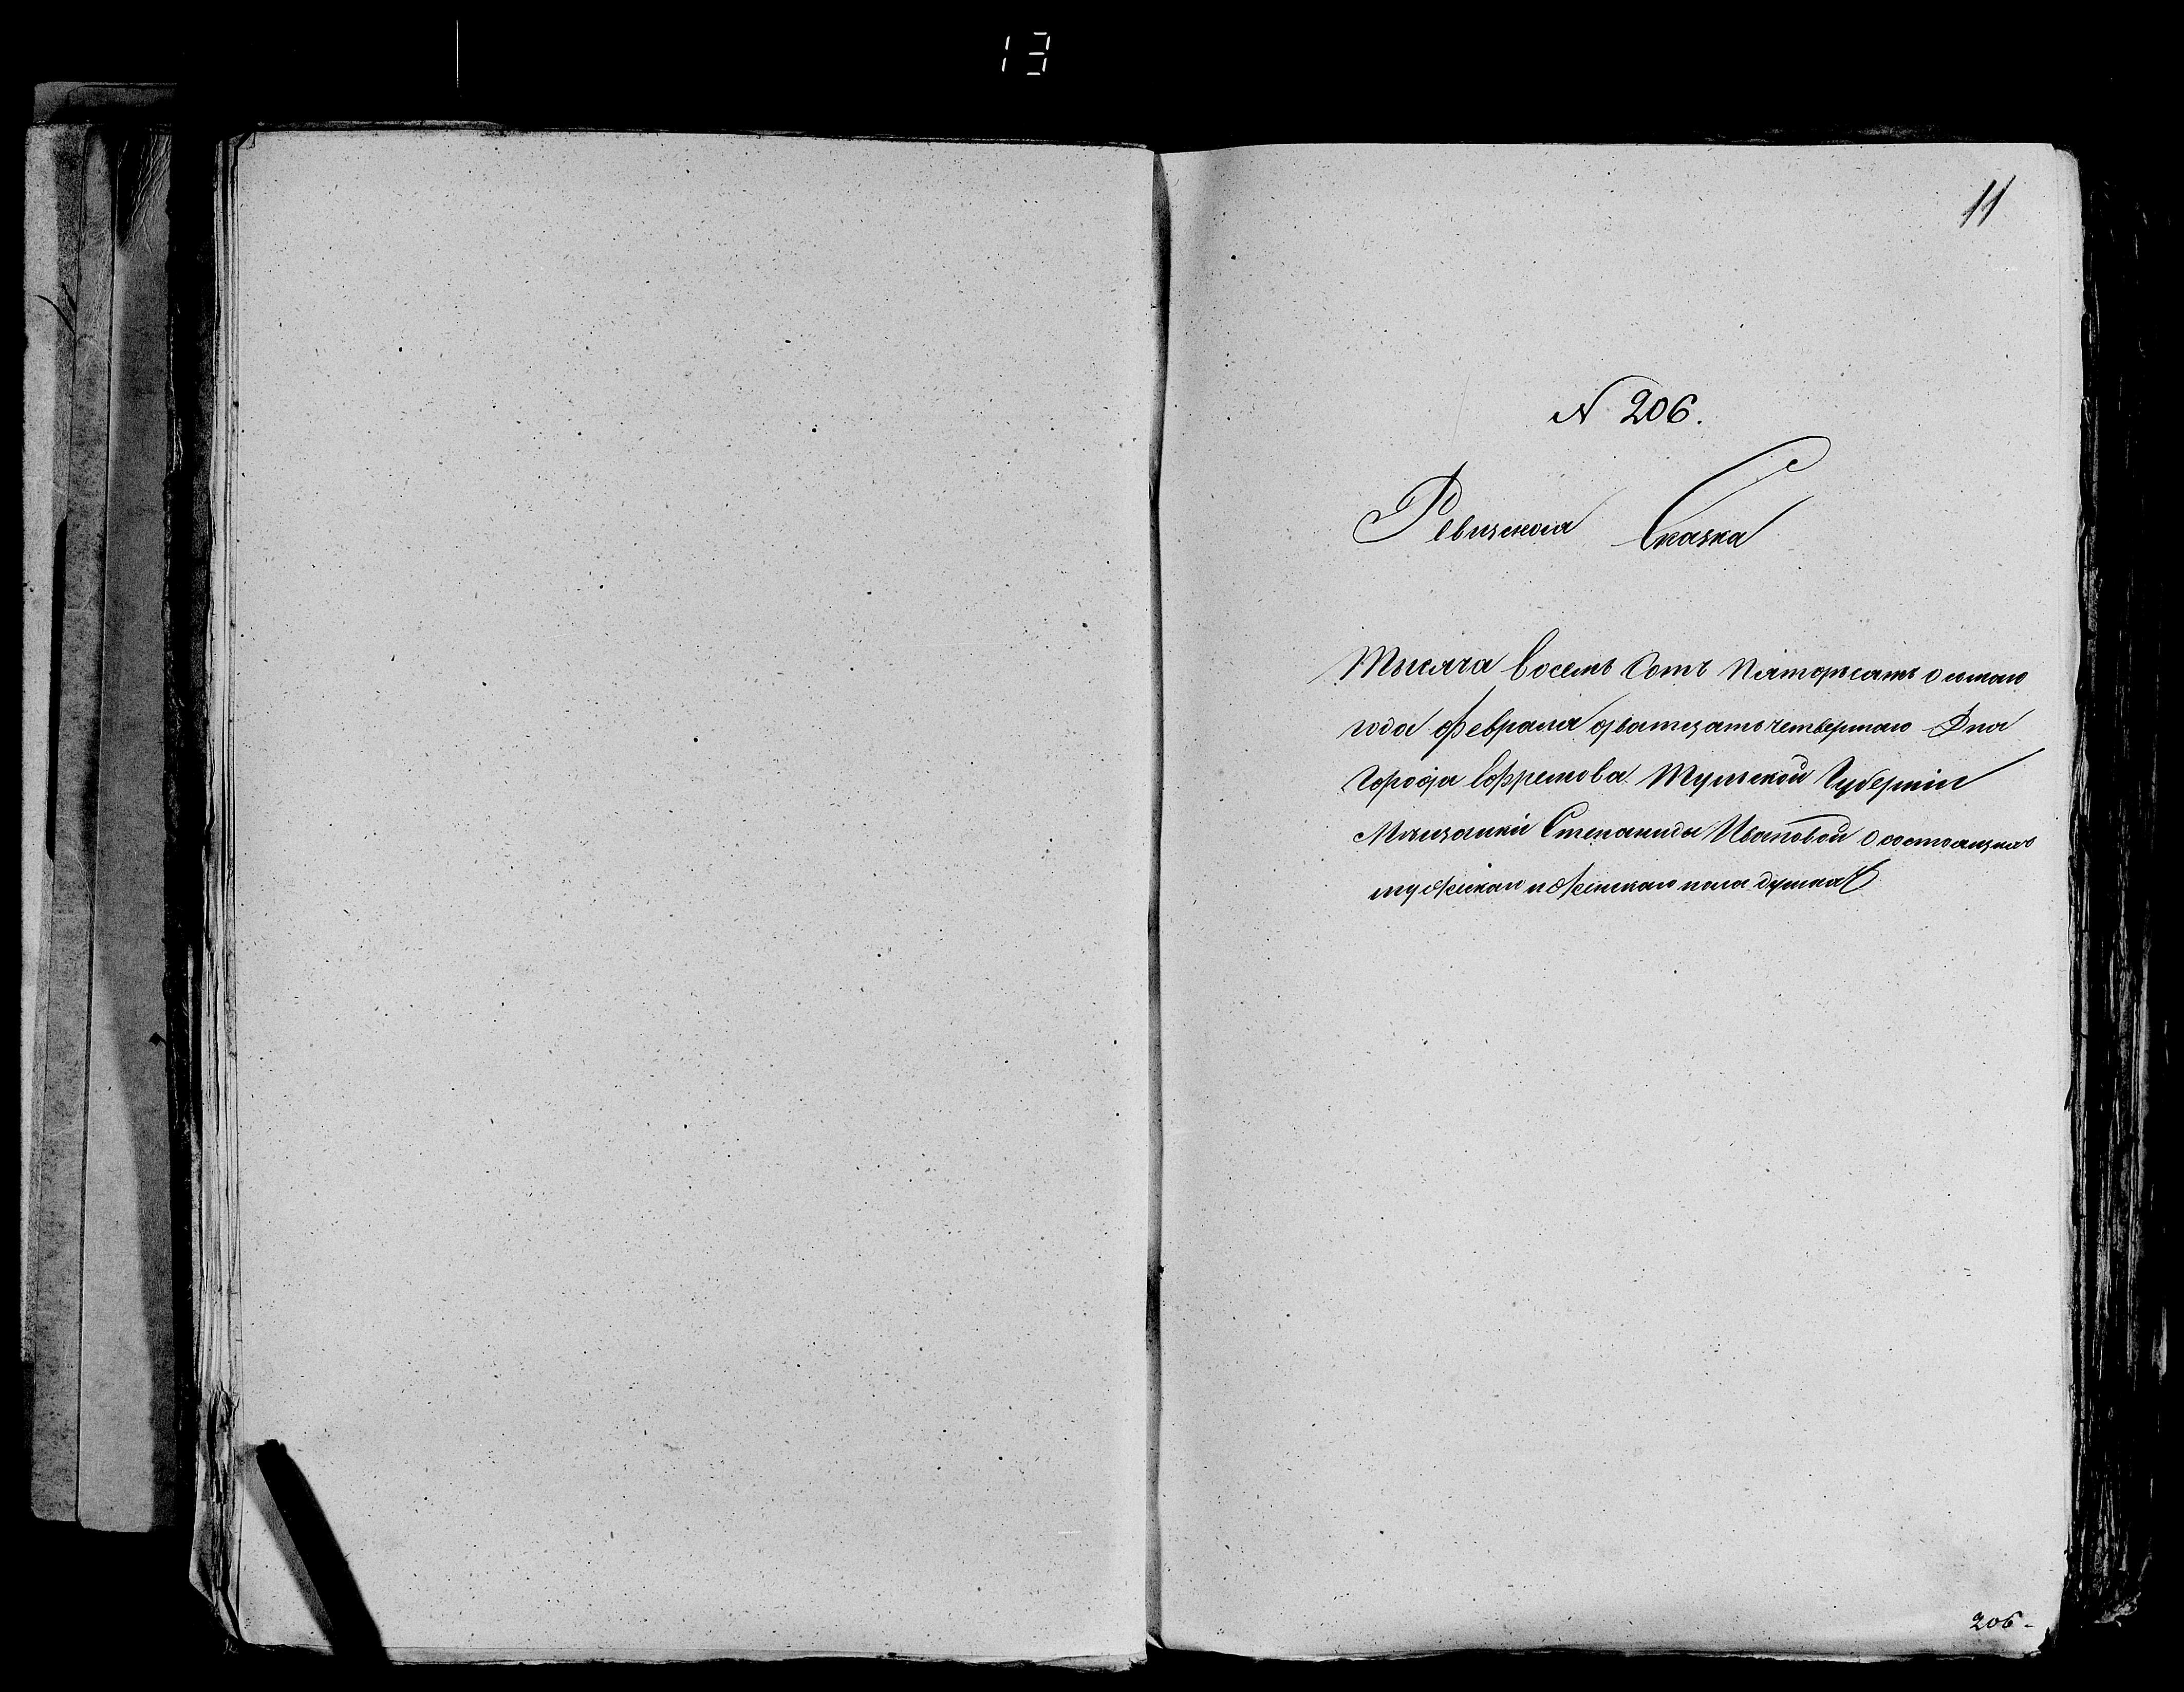 13
11
N 206.
Ревизская Сказка
Тысяча восемь сотъ пятдесятъ осьмаго
года февраля дватцать четвертаго дня
Города Ефремова Тульской Губерніи
Мѣщанки Степаниды Ивановой о состоящихъ
мужскаго и женскаго пола душахъ
206.